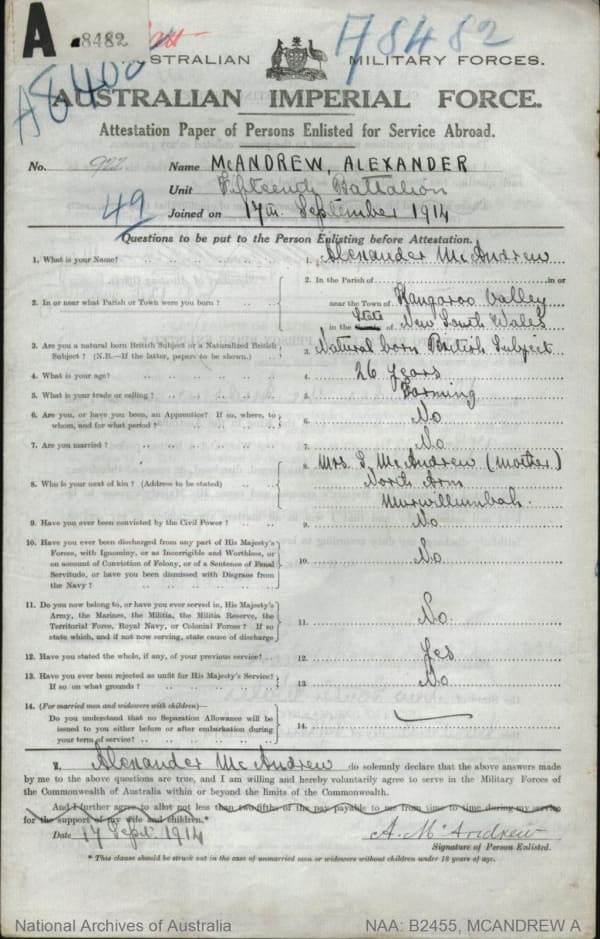 A 8482
A8400
A8482
AUSTRALIAN MILITARY FORCES.
AUSTRALIAN IMPERIAL FORCE.
Attestation Paper of Persons Enlisted for Service Abroad.
No. 922 Name McANDREW, ALEXANDER
Unit Fifteenth Battalion
49
Joined on 17th September 1914
Questions to be put to the Person Enlisting before Attestation.
1. What is your Name? 1. Alexander McAndrew
2. In or near what Parish or Town were you born? 2. In the Parish of in or
near the Town of Kangaroo Valley
in the State of New South Wales
3. Are you a natural born British Subject or a Naturalized British
Subject? (N.B.—If the latter, papers to be shown.) 3. Natural born British Subject
4. What is your age? 4. 26 years
5. What is your trade or calling? 5. Farming
6. Are you, or have you been, an Apprentice? If so, where, to
whom, and for what period? 6. No
7. Are you married? 7. No
8. Who is your next of kin? (Address to be stated) 8. Mrs. S. McAndrew (mother)
North Arm
Murwillumbah.
9. Have you ever been convicted by the Civil Power? 9. No
10. Have you ever been discharged from any part of His Majesty's
Forces, with Ignominy, or as Incorrigible and Worthless, or
on account of Conviction of Felony, or of a Sentence of Penal
Servitude, or have you been dismissed with Disgrace from
the Navy? 10. No
11. Do you now belong to, or have you ever served in, His Majesty's
Army, the Marines, the Militia, the Militia Reserve, the
Territorial Force, Royal Navy, or Colonial Forces? If so
state which, and if not now serving, state cause of discharge 11. No.
12. Have you stated the whole, if any, of your previous service? 12. Yes
13. Have you ever been rejected as unfit for His Majesty's Service?
If so on what grounds? 13. No
14. (For married men and widowers with children)—
Do you understand that no Separation Allowance will be
issued to you either before or after embarkation during
your term of service? 14.
I, Alexander McAndrew do solemnly declare that the above answers made
by me to the above questions are true, and I am willing and hereby voluntarily agree to serve in the Military Forces of
the Commonwealth of Australia within or beyond the limits of the Commonwealth.
And I further agree to allot not less than two-fifths of the pay payable to me from time to time during my service
for the support of my wife and children.*
Date 17 Sept. 1914 A. McAndrew
Signature of Person Enlisted.
* This clause should be struck out in the case of unmarried men or widowers without children under 18 years of age.
National Archives of Australia NAA: B2455, MCANDREW A